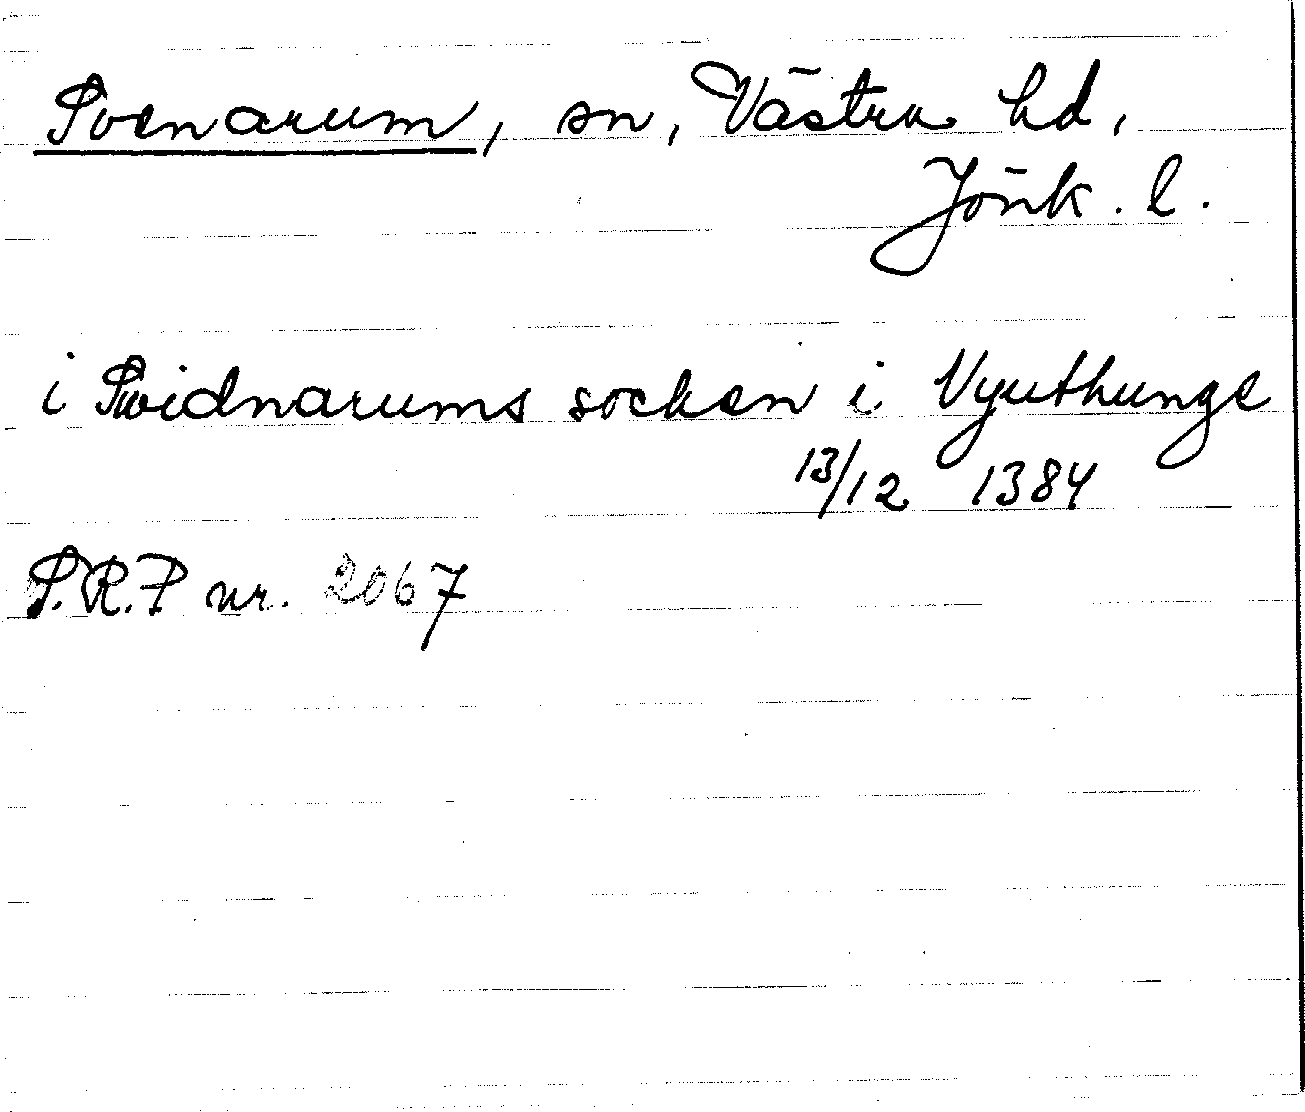 Svenarum, sn, Västra hd,
Jönk. l.
i Swidnarums socken i Vyuthunge
13/12 1384
S.R.P nr. 2067